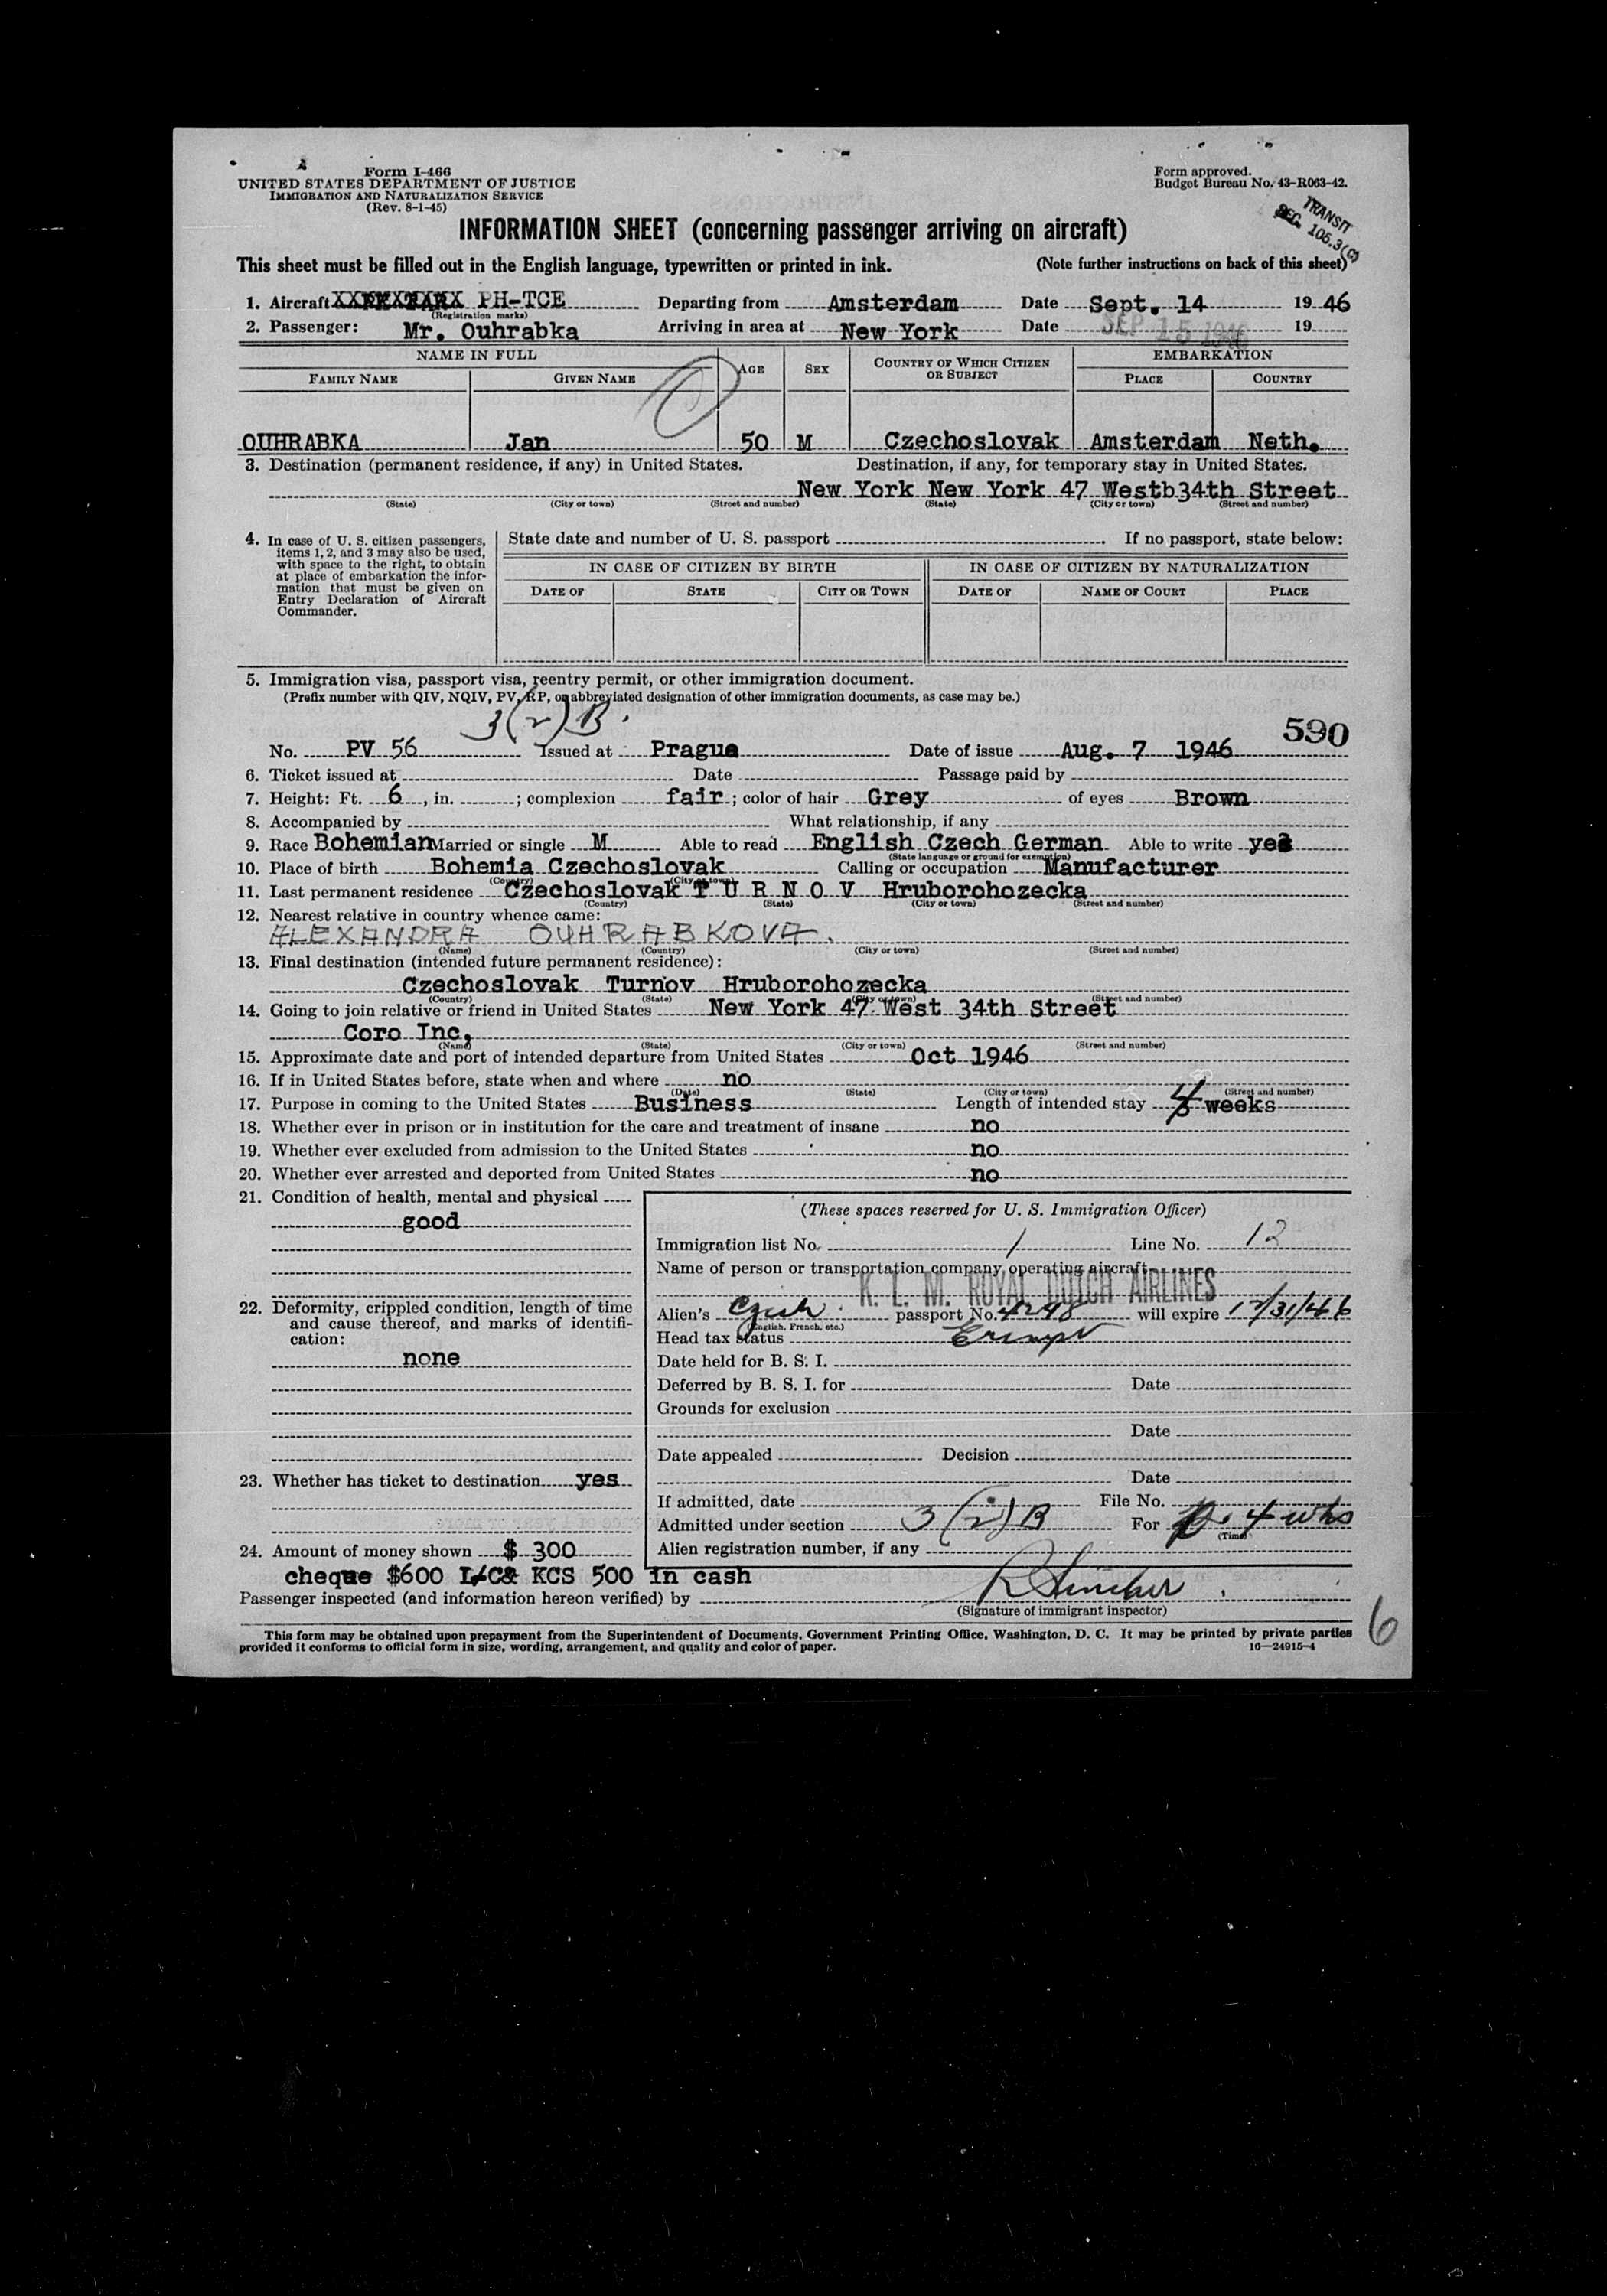 Form I-466
UNITED STATES DEPARTMENT OF JUSTICE
IMMIGRATION AND NATURALIZATION SERVICE
(Rev. 8-1-45)
Form approved.
Budget Bureau No. 43-R063-42.
TRANSIT
SEC. 105.3(c)
INFORMATION SHEET (concerning passenger arriving on aircraft)
This sheet must be filled out in the English language, typewritten or printed in ink. (Note further instructions on back of this sheet)
1. Aircraft PH-TCE Departing from Amsterdam Date Sept. 14 1946
(Registration marks)
2. Passenger: Mr. Ouhrabka Arriving in area at New York Date SEP 15 1946 19
NAME IN FULL AGE SEX COUNTRY OF WHICH CITIZEN OR SUBJECT EMBARKATION
FAMILY NAME GIVEN NAME PLACE COUNTRY
OUHRABKA Jan 50 M Czechoslovak Amsterdam Neth.
3. Destination (permanent residence, if any) in United States. Destination, if any, for temporary stay in United States.
New York New York 47 Westb34th Street
(State) (City or town) (Street and number) (State) (City or town) (Street and number)
4. In case of U. S. citizen passengers, items 1, 2, and 3 may also be used, with space to the right, to obtain at place of embarkation the information that must be given on Entry Declaration of Aircraft Commander.
State date and number of U. S. passport . If no passport, state below:
IN CASE OF CITIZEN BY BIRTH IN CASE OF CITIZEN BY NATURALIZATION
DATE OF STATE CITY OR TOWN DATE OF NAME OF COURT PLACE
5. Immigration visa, passport visa, reentry permit, or other immigration document.
(Prefix number with QIV, NQIV, PV, RP, or abbreviated designation of other immigration documents, as case may be.)
3(2)B.
590
No. PV 56 Issued at Prague Date of issue Aug. 7 1946
6. Ticket issued at Date Passage paid by
7. Height: Ft. 6, in. ; complexion fair; color of hair Grey of eyes Brown
8. Accompanied by What relationship, if any
9. Race Bohemian Married or single M Able to read English Czech German Able to write yes
(State language or ground for exemption)
10. Place of birth Bohemia Czechoslovak Calling or occupation Manufacturer
(Country) (City or town)
11. Last permanent residence Czechoslovak T U R N O V Hruborohozecka
(Country) (State) (City or town) (Street and number)
12. Nearest relative in country whence came:
ALEXANDRA OUHRABKOVA.
(Name) (Country) (City or town) (Street and number)
13. Final destination (intended future permanent residence):
Czechoslovak Turnov Hruborohozecka
(Country) (State) (City or town) (Street and number)
14. Going to join relative or friend in United States New York 47 West 34th Street
Coro Inc,
(Name) (State) (City or town) (Street and number)
15. Approximate date and port of intended departure from United States Oct 1946
16. If in United States before, state when and where no
(Date) (State) (City or town) (Street and number)
17. Purpose in coming to the United States Business Length of intended stay 4 weeks
18. Whether ever in prison or in institution for the care and treatment of insane no
19. Whether ever excluded from admission to the United States no
20. Whether ever arrested and deported from United States no
21. Condition of health, mental and physical
good
22. Deformity, crippled condition, length of time and cause thereof, and marks of identification:
none
23. Whether has ticket to destination yes
24. Amount of money shown $ 300
cheque $600 L/C& KCS 500 in cash
(These spaces reserved for U. S. Immigration Officer)
Immigration list No. 1 Line No. 12
Name of person or transportation company operating aircraft
K. L. M. ROYAL DUTCH AIRLINES
Alien's Czech. passport No. 4298 will expire 12/31/46
(English, French, etc.)
Head tax status Exempt
Date held for B. S. I.
Deferred by B. S. I. for Date
Grounds for exclusion
Date
Date appealed Decision
Date
If admitted, date File No.
Admitted under section 3(2)B For 4 wks
(Time)
Alien registration number, if any
Passenger inspected (and information hereon verified) by
(Signature of immigrant inspector)
This form may be obtained upon prepayment from the Superintendent of Documents, Government Printing Office, Washington, D. C. It may be printed by private parties
provided it conforms to official form in size, wording, arrangement, and quality and color of paper. 16—24915-4
6